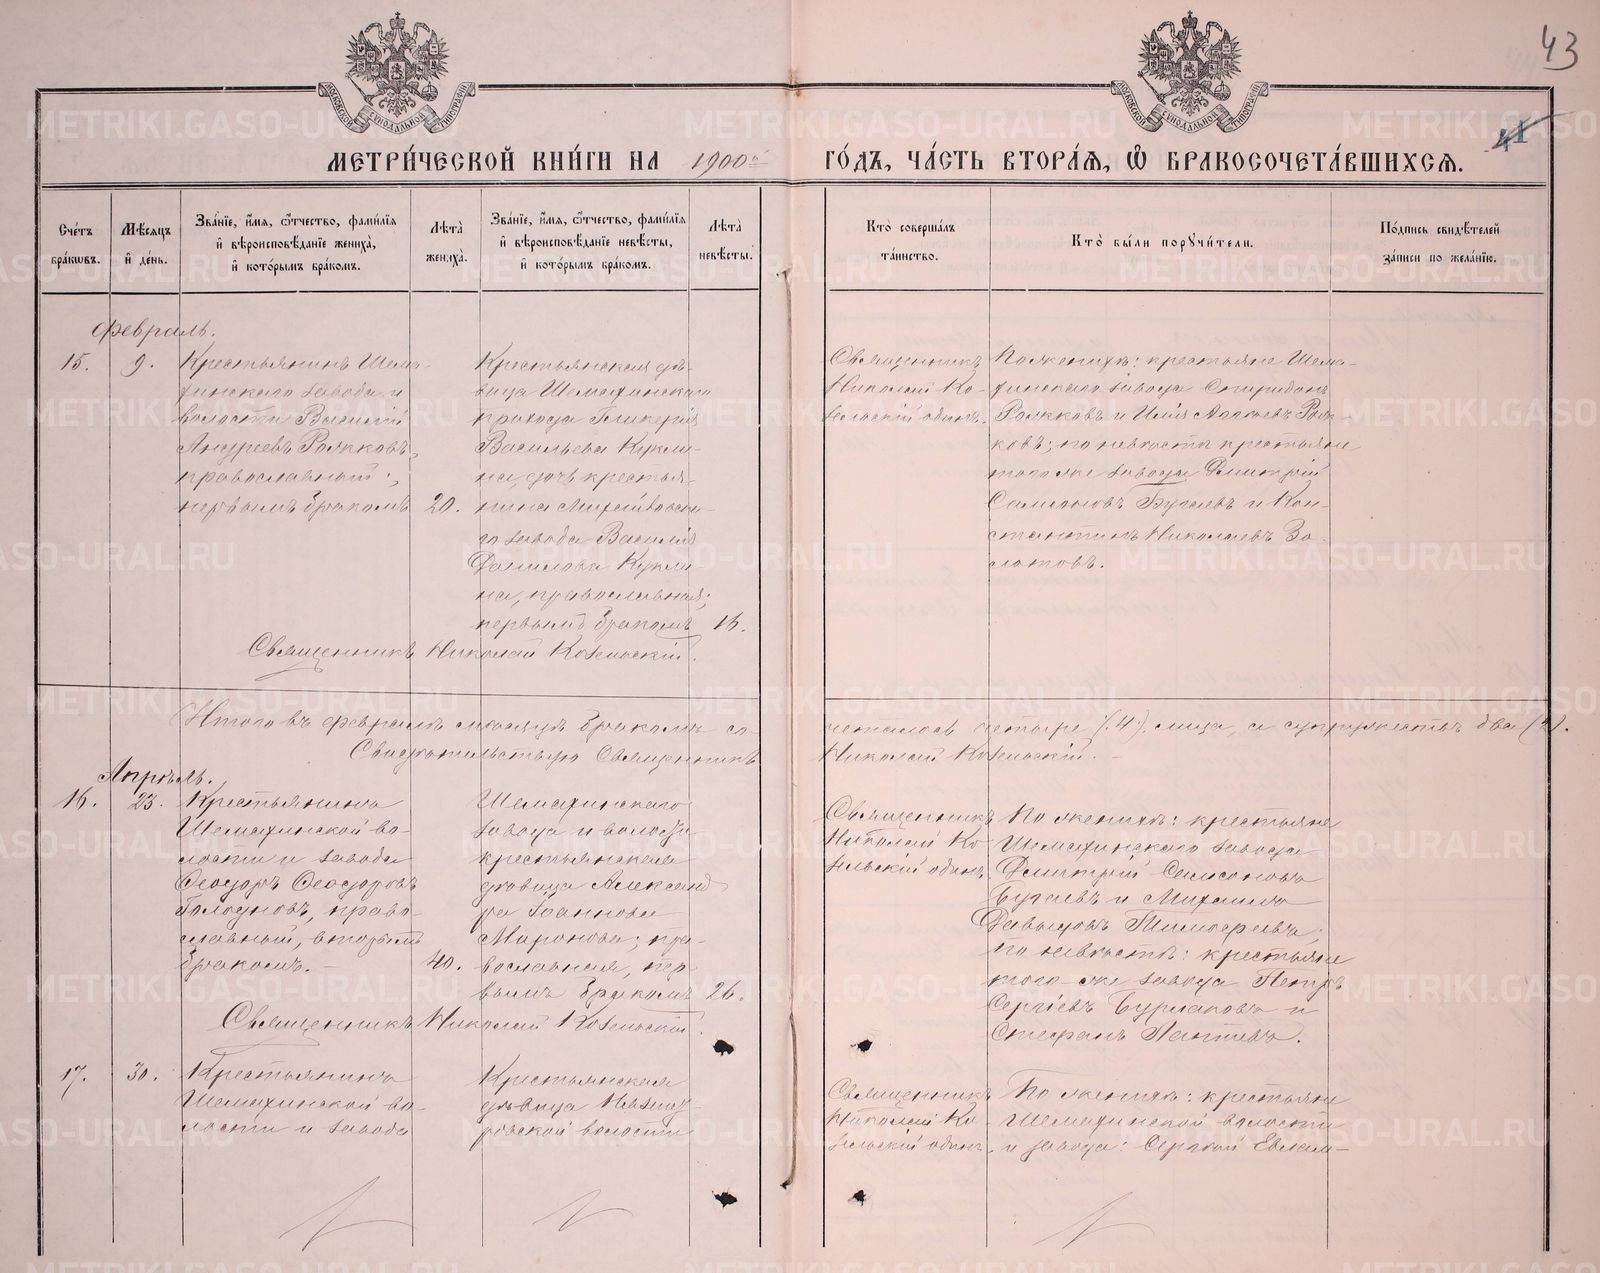 43
41
МЕТРИ́ЧЕСКОЙ КНИ́ГИ НА 1900й ГО́ДЪ, ЧА́СТЬ ВТОРА́Я, Ѡ БРАКОСОЧЕТА́ВШИХСЯ.
Сче́тъ бра́кѡвъ.
Мѣ́сяцъ и҆ де́нь.
Зва́нїе, и҆́мя, ѻ҆́тчество, фами́лїя
и҆ вѣроисповѣ́данїе жениха̀,
и҆ кото́рымъ бра́комъ.
Лѣта̀ жениха̀.
Зва́нїе, и҆́мя, ѻ҆́тчество, фами́лїя
и҆ вѣроисповѣ́данїе невѣ́сты,
и҆ кото́рымъ бра́комъ.
Лѣта̀ невѣ́сты.
Кто̀ соверша́лъ
та́инство.
Кто̀ бы́ли порꙋчи́тели.
По́дпись свидѣ́телей
за́писи по жела́нїю.
Февраль.
15.
9.
Крестьянинъ Шема-
хинскаго завода и
волости Василій
Андреевъ Рожковъ,
православный;
первымъ бракомъ
20.
Крестьянская дѣ-
вица Шемахинскаго
прихода Гликерія
Васильева Кукли-
на, дочь крестья-
нина Михайловска-
го завода Василія
Данилова Кукли-
на, православная;
первымъ бракомъ
16.
Священникъ
Николай Ко-
зельскій один.
По женихѣ: крестьяне Шема-
хинскаго завода Спиридонъ
Рожковъ и Илія Рож-
ковъ; по невѣстѣ крестьяне
того же завода Дмитрій
Самсоновъ Бугаевъ и Кон-
стантинъ Николаевъ Зо-
лотовъ.
Священникъ Николай Козельскій.
Итого въ февралѣ мѣсяцѣ бракомъ со-
четалось четыре (4) лица, а супружествъ два (2).
Священникъ
Николай Козельскій.
Апрѣль.
16.
23.
Крестьянинъ
Шемахинской во-
лости и завода
Ѳеодоръ Ѳеодоровъ
Голодновъ, право-
славный, вторымъ
бракомъ.
40.
Шемахинскаго
завода и волости
крестьянская
дѣвица Александ-
ра Іоаннова
Миронова; пра-
вославная, пер-
вымъ бракомъ
26.
Священникъ
Николай Ко-
зельскій один.
По женихѣ: крестьяне
Шемахинскаго завода
Дмитрій Самсоновъ
Бугаевъ и Михаилъ
Давыдовъ Тимофеевъ;
по невѣстѣ: крестьяне
того же завода Петръ
Сергіевъ Бурмаковъ и
Стефанъ Лаптевъ.
Священникъ Николай Козельскій.
17.
30.
Крестьянинъ
Шемахинской во-
лости и завода
Крестьянская
дѣвица Нязепет-
ровской волости
Священникъ
Николай Ко-
зельскій один.
По женихѣ: крестьяне
Шемахинской волости
и завода: Сергѣй Евлам-
METRIKI.GASO-URAL.RU